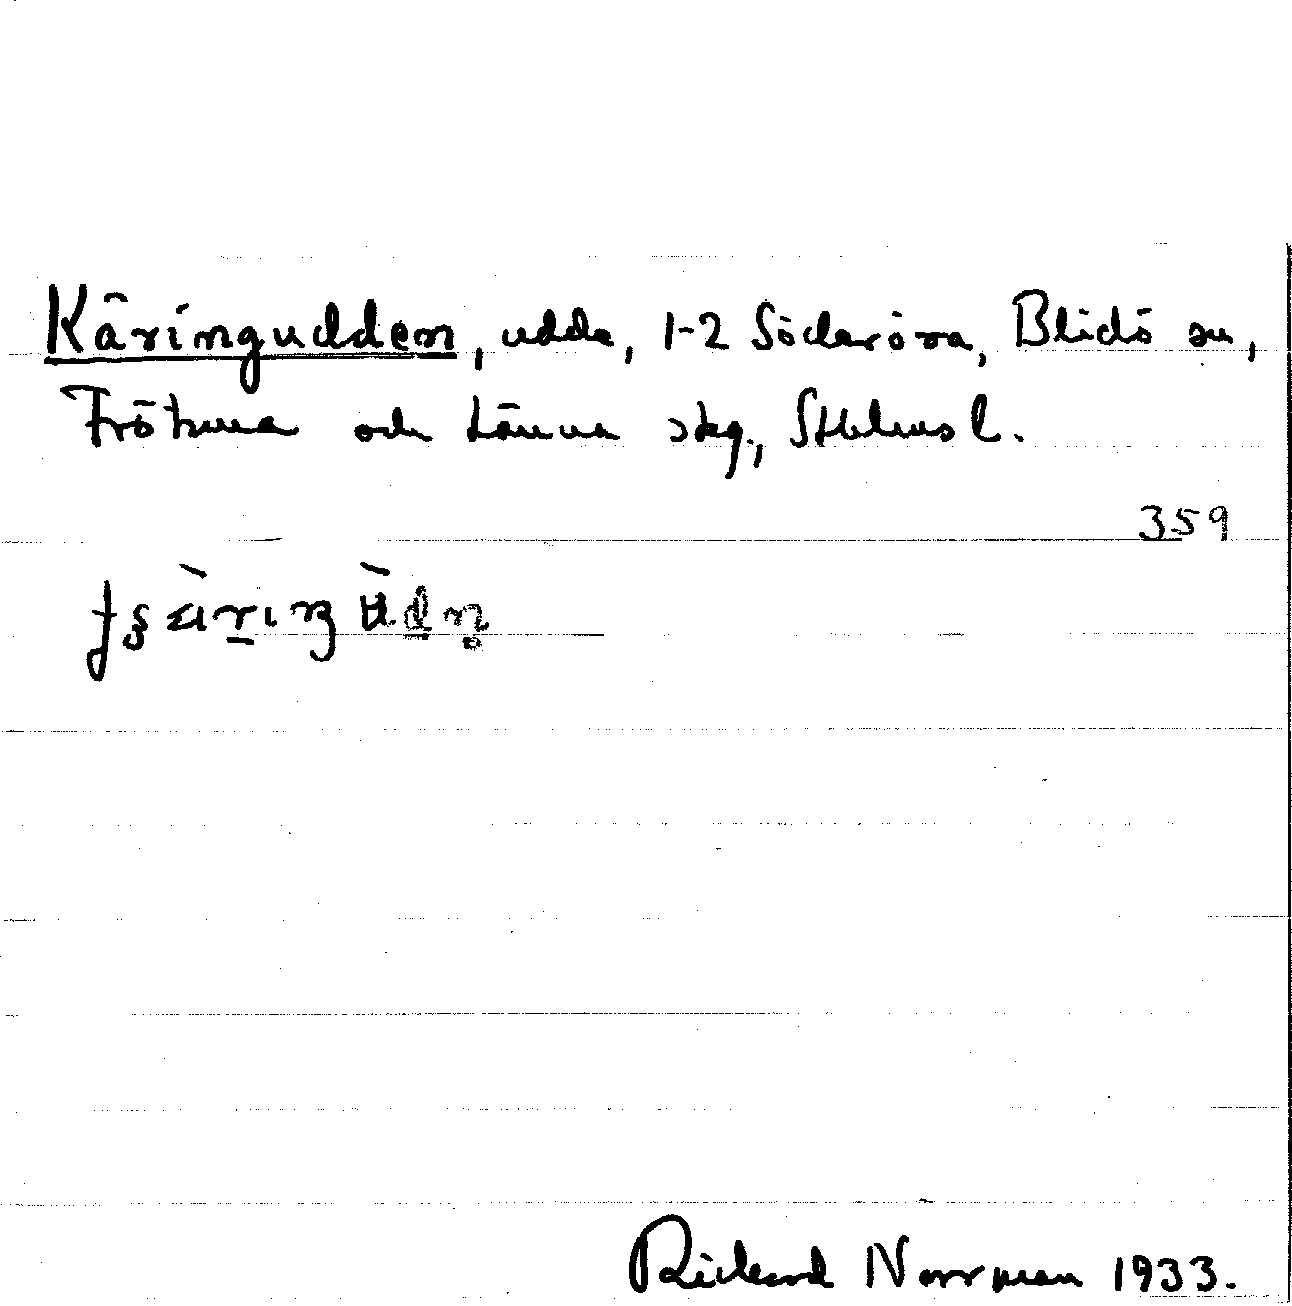 Käringudden, udde, 1-2 Söderöra, Blidö sn,
Frötuna och Länna skg., Sthlms l.
359
Rickard Norrman 1933.